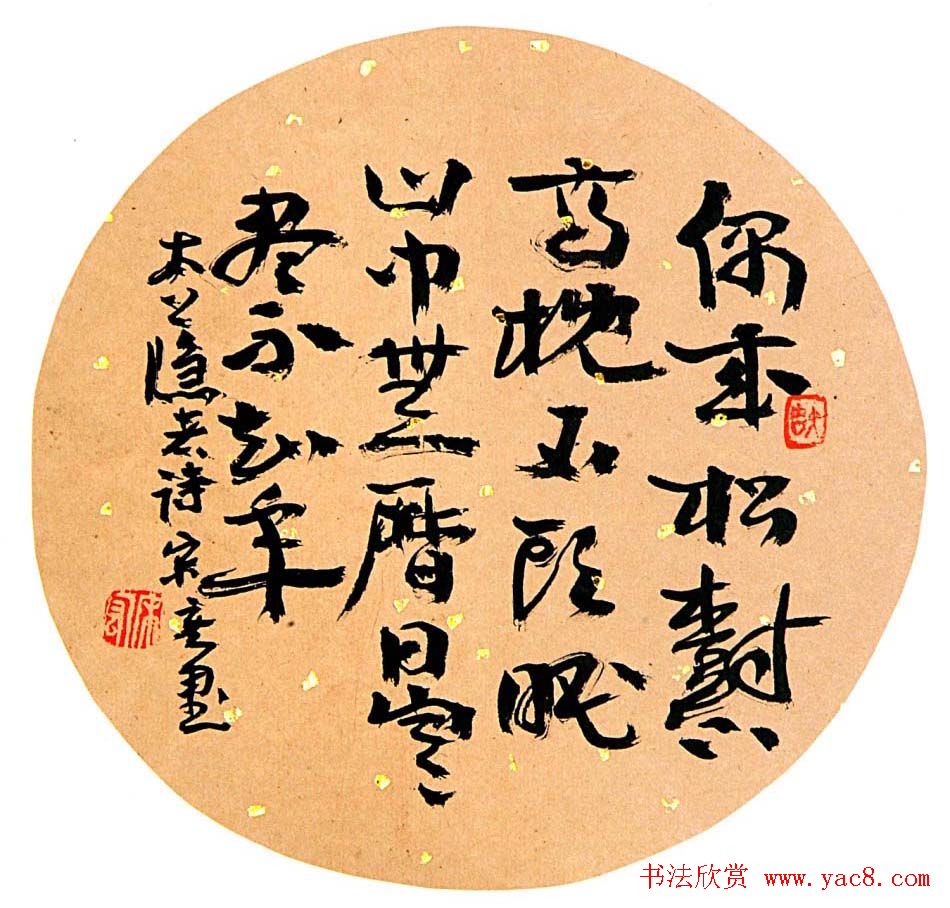 偶来松樹下
高枕石頭眠
山中無曆日寒
尽不知年
太上隐者诗宋墨
书法欣赏 www.yac8.com